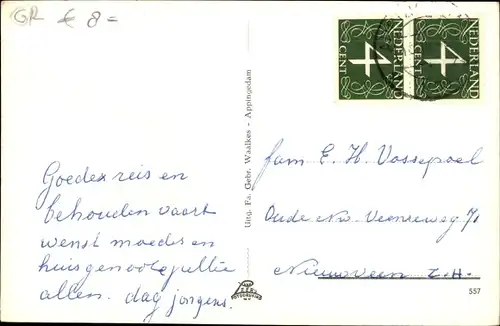 GR € 8 =
4 CENT NEDERLAND
4 CENT NEDERLAND
Uitg. Fa. Gebr. Waalkes - Appingedam
Goede reis en
behouden vaart
wenst moeder en
huisgenote jullie
allen. dag jongens.
fam E. H. Vossepoel
Oude Nw. Veenseweg 71
Nieuwveen Z.H.
557